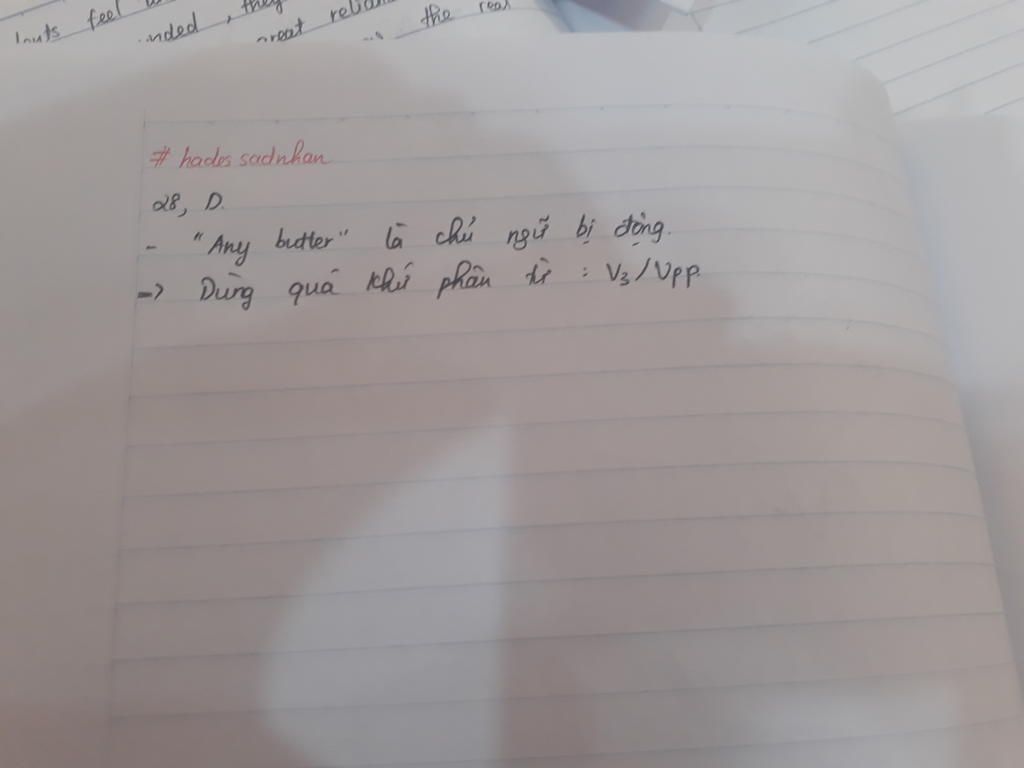 feel
they
great
the real
# hades sadnhan
28, D.
- "Any butter" là chủ ngữ bị động.
=> Dùng quá khứ phân từ : V3/Vpp.